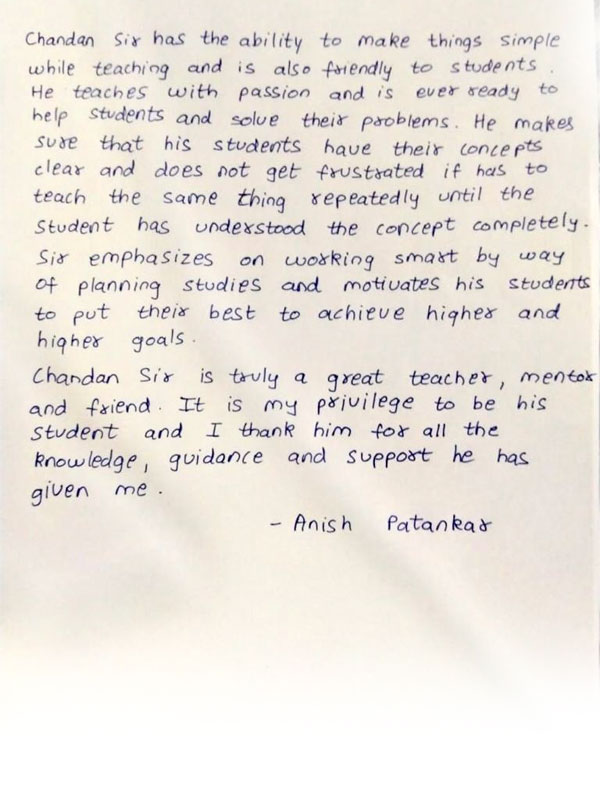 Chandan Sir has the ability to make things simple
while teaching and is also friendly to students.
He teaches with passion and is ever ready to
help students and solve their problems. He makes
sure that his students have their concepts
clear and does not get frustrated if has to
teach the same thing repeatedly until the
student has understood the concept completely.
Sir emphasizes on working smart by way
of planning studies and motivates his students
to put their best to achieve higher and
higher goals.
Chandan Sir is truly a great teacher, mentor
and friend. It is my privilege to be his
student and I thank him for all the
knowledge, guidance and support he has
given me.
- Anish Patankar